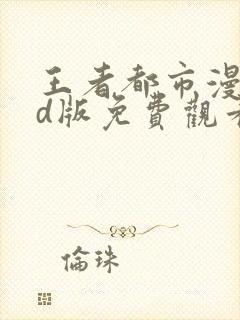 王者都市漫
d版免費觀看
倫珠